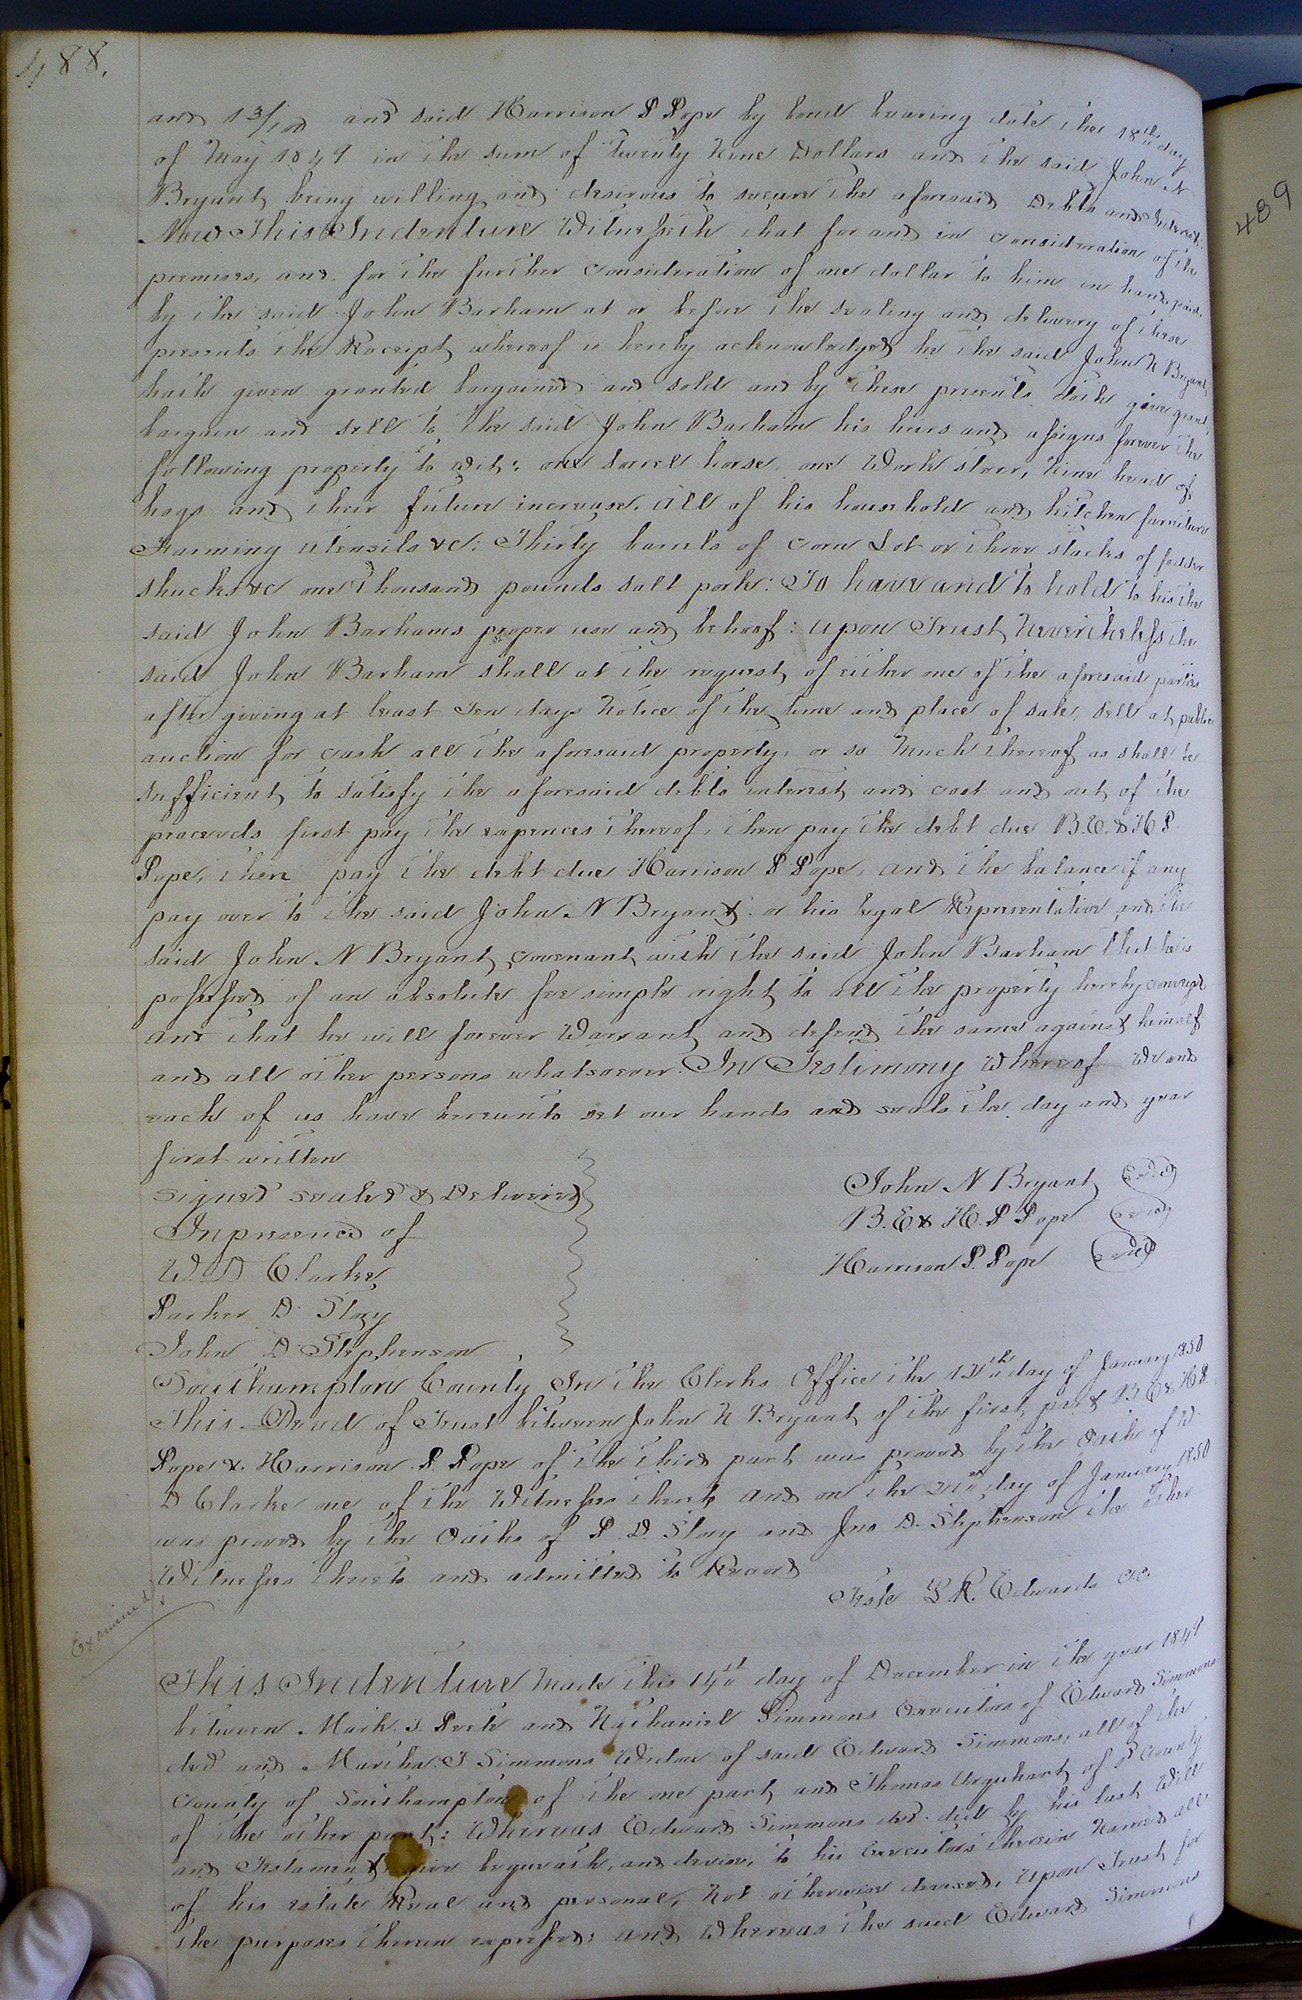 488.
and 13/100 and said Harrison P Pope by bond bearing date the 18th day
of May 1849 in the sum of Twenty Nine Dollars and the said John N
Bryant being willing and desirous to secure the aforesaid Debts and Interest:
Now This Indenture Witnesseth that for and in consideration of the
premises, and for the further consideration of one dollar to him in hand paid
by the said John Barham at or before the sealing and delivery of these
presents the Receipt whereof is hereby acknowledged he the said John N Bryant
hath given granted bargained and sold and by these presents doth give grant,
bargain and sell to the said John Barham his heirs and assigns forever the
following property to wit: one sorrel horse, one Work steer, Nine head of
hogs and their future increase, all of his household and kitchen furniture
Farming utensils &c: Thirty barrels of corn Lot or three stacks of fodder
shucks &c one Thousand pounds salt pork: To have and to hold to his the
said John Barhams proper use and behoof: upon Trust Nevertheless the
said John Barham shall at the request of either one of the aforesaid parties
after giving at least Ten days Notice of the time and place of sale, sell at public
auction for cash all the aforesaid property, or so much thereof as shall be
sufficient to satisfy the aforesaid debts interest and cost and out of the
proceeds first pay the expences thereof, then pay the debt due B.E. & H P
Pope, then pay the debt due Harrison P Pope, and the balance if any
pay over to the said John N Bryant or his legal Representative and the
said John N Bryant covenant with the said John Barham that he is
possessed of an absolute fee simple right to all the property hereby conveyed
and that he will forever Warrant and defend the same against himself
and all other persons whatsoever. In Testimony Whereof We and
each of us have hereunto set our hands and seals the day and year
first written
Signed Sealed & Delivered
In presence of
W. D Clarke,
Parker D. Story
John D. Stephenson
John N Bryant (Seal)
B. E & H. P Pope (Seal)
Harrison P. Pope (Seal)
Southampton County In the Clerks Office the day of January 1850
This Deed of Trust between John N Bryant of the first part B E & H P.
Pope & Harrison P Pope of the third part was proved by the Oath of W.
D Clarke one of the Witnesses thereto and on the day of January 1850
was proved by the Oaths of P. D. Story and Jno D. Stephenson the other
Witnesses thereto and admitted to Record
Teste L. R. Edwards CC.
Examined
This Indenture Made this 14th day of December in the year 1849
between Mark. S. and Nathaniel Simmons Executors of Edward Simmons
decd and Martha. J Simmons Widow of said Edward Simmons, all of the
County of Southampton of the one part and Thomas Urquhart of sd County
of the other part: Whereas Edward Simmons decd. did by his last Will
and Testament give bequeath, and devise, to his Executors therein Named all
of his estate Real and personal, Not otherwise devised, upon Trust for
the purposes therein expressed: and Whereas the said Edward Simmons
489